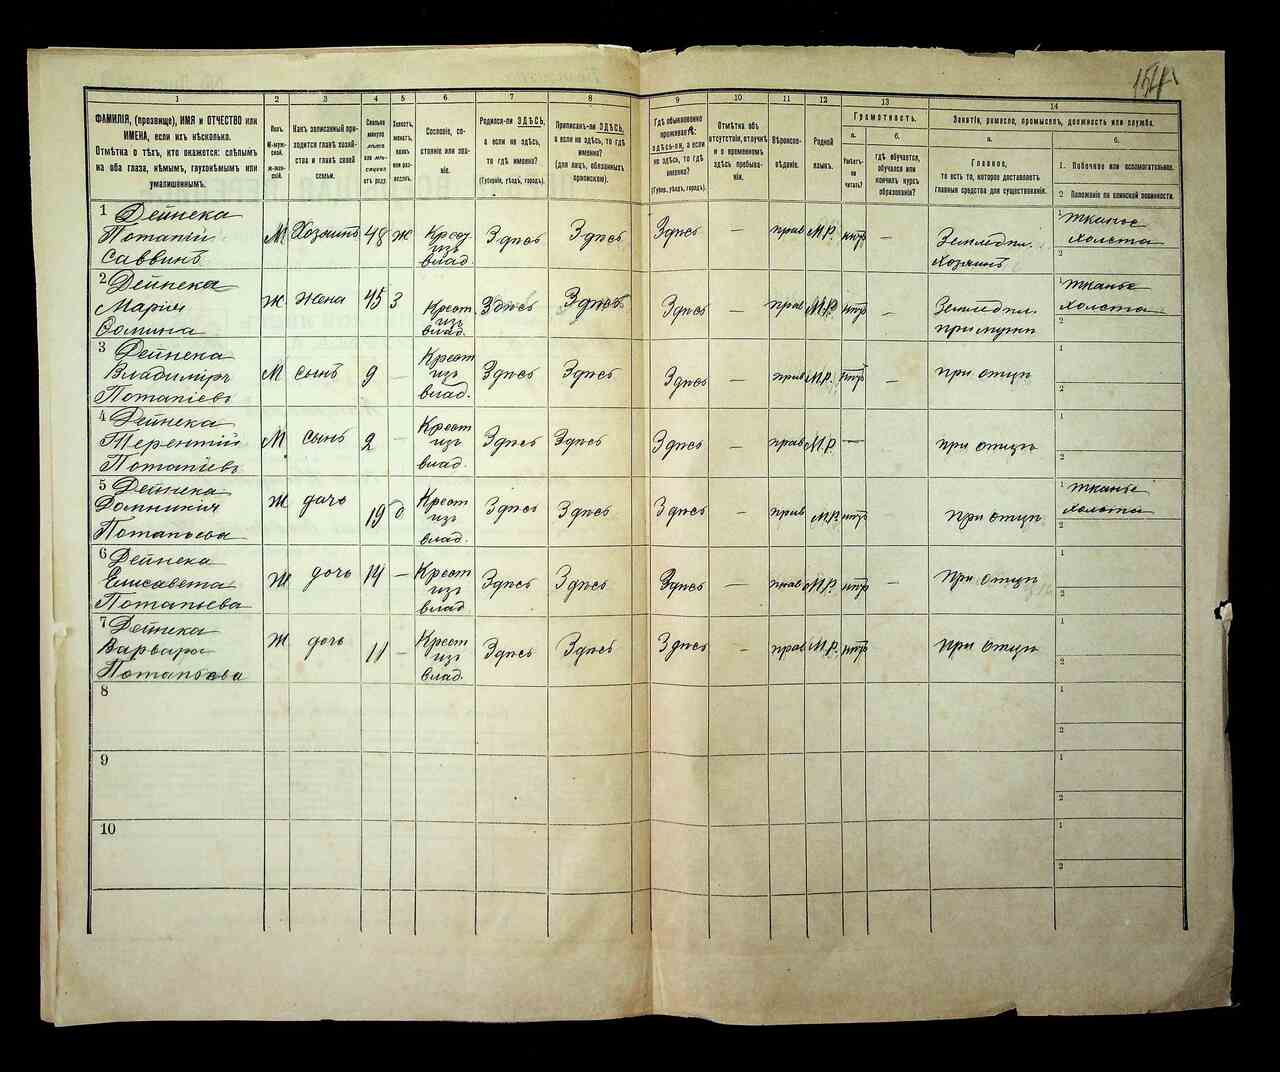 154
1 2 3 4 5 6 7 8 9 10 11 12 13 14
ФАМИЛІЯ, (прозвище), ИМЯ и ОТЧЕСТВО или
ИМЕНА, если ихъ нѣсколько.
Отмѣтка о тѣхъ, кто окажется: слѣпымъ
на оба глаза, нѣмымъ, глухонѣмымъ или
умалишеннымъ.
Полъ.
М-муж-
ской.
Ж-жен-
скій.
Какъ записанный при-
ходится главѣ хозяй-
ства и главѣ своей
семьи.
Сколько
минуло
лѣтъ
или мѣ-
сяцевъ
отъ роду.
Холостъ,
женатъ,
вдовъ
или раз-
веденъ.
Сословіе, со-
стояніе или зва-
ніе.
Родился-ли ЗДѢСЬ,
а если не здѣсь,
то гдѣ именно?
(Губернія, уѣздъ, городъ).
Приписанъ-ли ЗДѢСЬ,
а если не здѣсь, то гдѣ
именно?
(для лицъ, обязанныхъ
припискою).
Гдѣ обыкновенно
проживаетъ:
здѣсь-ли, а если
не здѣсь, то гдѣ
именно?
(Губер., уѣздъ, городъ).
Отмѣтка объ
отсутствіи, отлучкѣ
и о временномъ
здѣсь пребыва-
ніи.
Вѣроиспо-
вѣданіе.
Родной
языкъ.
Грамотность.
а.
Умѣетъ-
ли
читать?
б.
гдѣ обучается,
обучался или
кончилъ курсъ
образованія?
Занятіе, ремесло, промыселъ, должность или служба.
а.
Главное,
то есть то, которое доставляетъ
главныя средства для существованія.
б.
1. Побочное или вспомогательное.
2 Положеніе по воинской повинности.
1 Дейнека
Потапій
Саввинъ
М Хозяинъ 48 ж Крест изъ влад. Здѣсь Здѣсь Здѣсь — прав М.Р. нѣтъ — Землед. хозяинъ 1 тканье холста 2
2 Дейнека
Марія
Ж жена 45 З Крест. изъ влад. Здѣсь Здѣсь Здѣсь — прав М.Р. нѣтъ — Землед. при мужѣ 1 тканье холста 2
3 Дейнека
Владиміръ
Потапіевъ
М сынъ 9 — Крест изъ влад. Здѣсь Здѣсь Здѣсь — прав М.Р. нѣтъ — при отцѣ 1 2
4 Дейнека
Терентій
Потапіевъ
М сынъ 2 — Крест изъ влад. Здѣсь Здѣсь Здѣсь — прав М.Р. — при отцѣ 1 2
5 Дейнека
Домникія
Потапьева
Ж дочь 19 Крест изъ влад. Здѣсь Здѣсь Здѣсь — прав М.Р. нѣтъ при отцѣ 1 тканье холста 2
6 Дейнека
Елисавета
Потапьева
Ж дочь 14 — Крест изъ влад Здѣсь Здѣсь Здѣсь — прав М.Р. нѣтъ — при отцѣ 1 2
7 Дейнека
Варвара
Потапьева
Ж дочь 11 — Крест изъ влад. Здѣсь Здѣсь Здѣсь — прав М.Р. нѣтъ при отцѣ 1 2
8 1 2
9 1 2
10 1 2